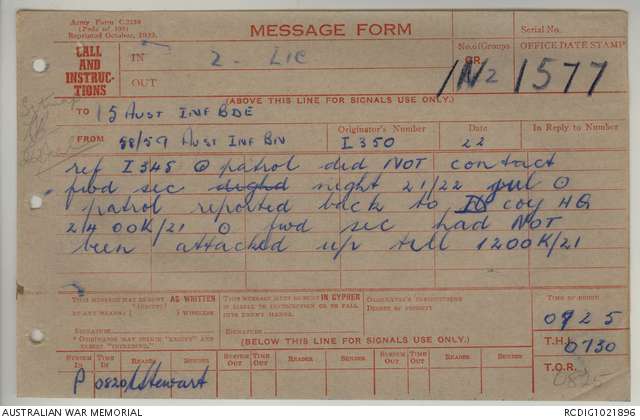 Army Form C.2128
(Pads of 100)
Reprinted October, 1932.
MESSAGE FORM
Serial No.
CALL
AND
INSTRUC-
TIONS
IN
2. LIC
OUT
No. of Groups
GR.
OFFICE DATE STAMP
1N2 1577
(ABOVE THIS LINE FOR SIGNALS USE ONLY.)
TO 15 AUST INF BDE
FROM 58/59 AUST INF BN
Originator's Number
I 350
Date
22
In Reply to Number
ref I 345 O patrol did NOT contact
fwd sec night 21/22 jul O
patrol reported back to coy HQ
2400K/21 O fwd sec had NOT
been attacked up till 1200K/21
THIS MESSAGE MAY BE SENT AS WRITTEN
BY ANY MEANS (EXCEPT) WIRELESS
SIGNATURE
* ORIGINATOR MAY STRIKE "EXCEPT" AND
INSERT "INCLUDING."
THIS MESSAGE MUST BE SENT IN CIPHER
IF LIABLE TO INTERCEPTION OR TO FALL
INTO ENEMY HANDS.
SIGNATURE
ORIGINATOR'S INSTRUCTIONS
DEGREE OF PRIORITY
TIME OF ORIGIN
0725
(BELOW THIS LINE FOR SIGNALS USE ONLY.)
T.H.I.
0730
SYSTEM IN
TIME IN
READER
SENDER
SYSTEM OUT
TIME OUT
READER
SENDER
SYSTEM OUT
TIME OUT
READER
SENDER
T.O.R.
0825
P 0820 Stewart
AUSTRALIAN WAR MEMORIAL
RCDIG1021896